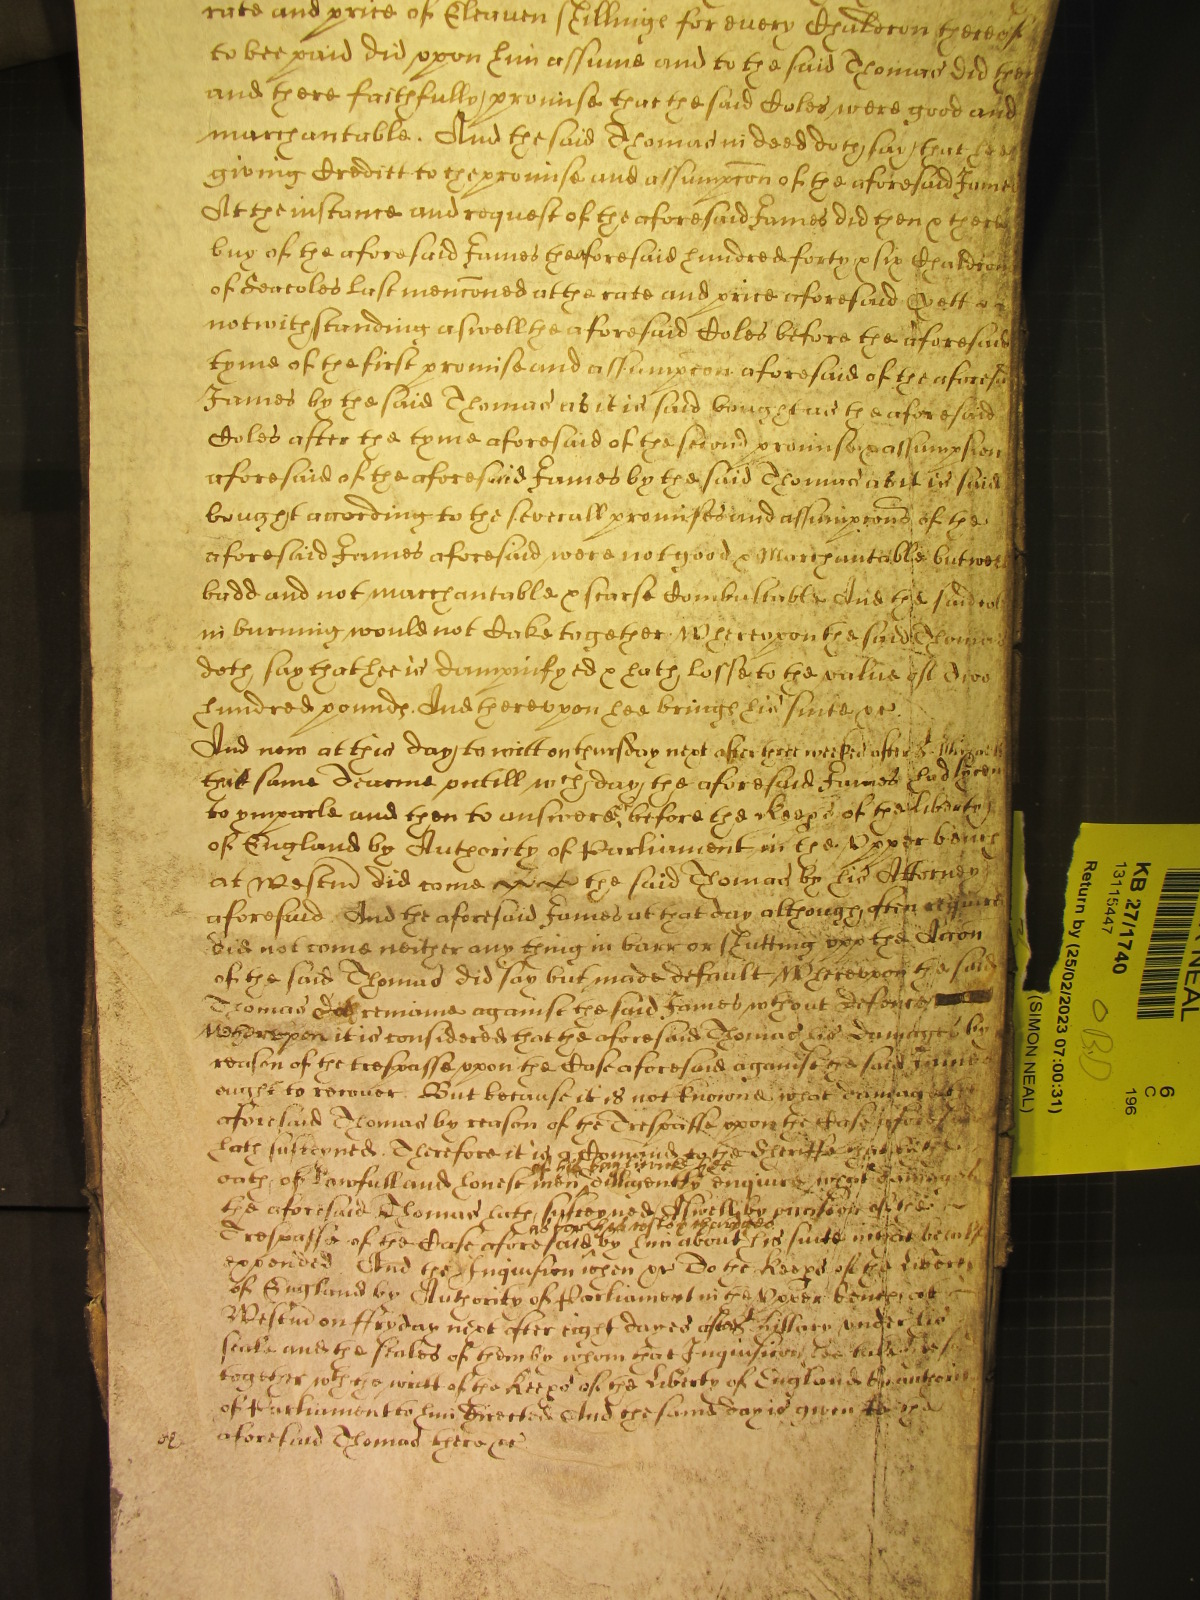 rate and price of Eleaven shillings for every Chaldron thereof
to bee paid did upon him assume and to the said Thomas did then
and there faithfully promise that the said Coles were good and
marchantable. And the said Thomas in deed doth say that hee
giving Creditt to the promise and assumpcon of the aforesaid James
At the instance and request of the aforesaid James did then & there
buy of the aforesaid James the aforesaid hundred forty & six Chaldron
of Seacoles last menconed at the rate and price aforesaid Yett
notwithstanding aswell the aforesaid Coles before the aforesaid
tyme of the first promise and assumpcon aforesaid of the aforesaid
James by the said Thomas as it is said bought as the aforesaid
Coles after the tyme aforesaid of the second promise & assumpsion
aforesaid of the aforesaid James by the said Thomas as it is said
bought according to the severall promises and assumpcons of the
aforesaid James aforesaid were not good & Marchantable but were
badd and not marchantable & scarse Combustable And the said Coles
in burning would not Cake together Whereupon the said Thomas
doth say that hee is dampnifyed & hath losse to the value of Two
hundred pounds. And thereupon hee brings his suite &c.
And now at this day to witt on thursday next after three weekes after S. Michaell
that same Tearme untill wch day the aforesaid James had lycence
to ymparle and then to answere &c before the Keeps of the Liberty
of England by Authority of Parliament in the Upper bench
at Westm did come the said Thomas by his Attorney
aforesaid And the aforesaid James at that day although often required
did not come neither any thing in barr or shutting upp the Accon
of the said Thomas did say but made default Whereupon the said
Thomas doth remaine against the said James wthout defence
Whereupon it is considered that the aforesaid Thomas his damages by
reason of the trespasse upon the Case aforesaid against the said James
ought to recover. But because it is not knowne what damages the
aforesaid Thomas by reason of the Trespasse upon the Case aforesaid
hath susteyned. Therefore it is Comand to the Sheriffe that by the
of his bayliwicke hee
oath of Lawfull and honest men diligently enquire what damages
the aforesaid Thomas hath susteyned Aswell by occasion of the
as for his costs & charges
Trespasse of the Case aforesaid by him about his suite in that behalf
expended And the Inquisicon when &c To the Keeps of the Liberty
of England by Authority of Parliament in the Upper bench at
Westm on ffryday next after eight dayes after Hillary under his
seale and the seales of them by whom that Inquisicon hee take
together wth the writt of the Keeps of the Liberty of England by authority
of Parliament to him directed And the same day is given to the
aforesaid Thomas there &c
KB 27/1740
13115447
Return by (25/02/2023 07:00:31)
(SIMON NEAL)
NEAL
6
C
196